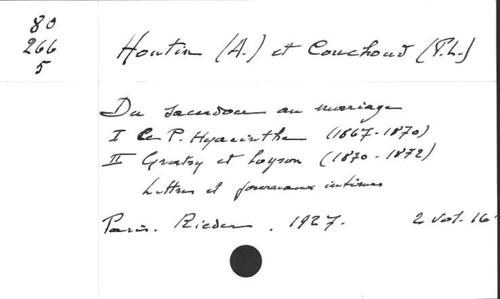 80
266
5
Houtin (A.) et Couchoud (P.L.)
Du sacerdoce au mariage
I Le P. Hyacinthe (1867-1870)
II Gratry et Loyson (1870-1872)
Lettres et journaux intimes
Paris. Rieder. 1927. 2 vol. 16